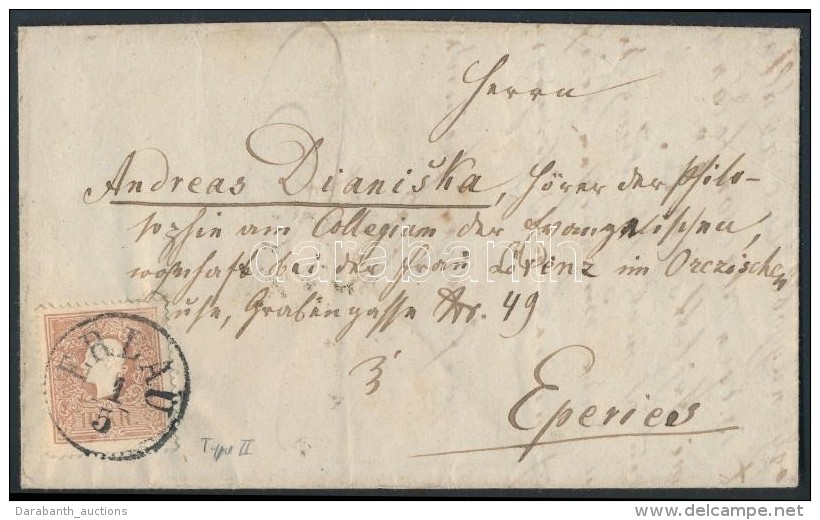 Herrn
Andreas Dianiška, Hörer der Philo-
sophie am Collegium der Evangelischen,
wohnhaft bei der Frau Lorenz im Orczischen
Hause, Grabengasse Nro. 49
Eperies
ERLAU
1
5
Type II
darabanth
Darabanth_auctions
delcampe.net